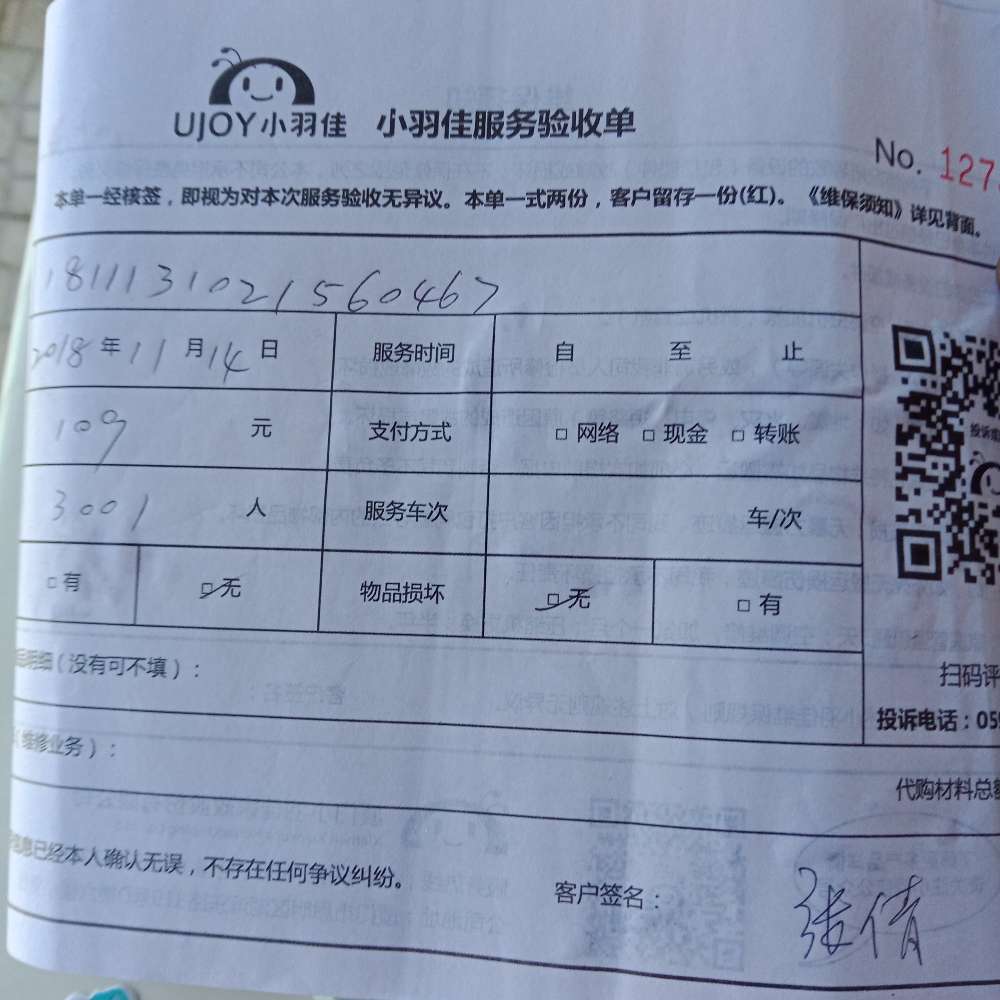 UJOY小羽佳 小羽佳服务验收单
No. 127
本单一经核签，即视为对本次服务验收无异议。本单一式两份，客户留存一份(红)。《维保须知》详见背面。
1811131021560467
2018年11月14日 服务时间 自 至 止
109 元 支付方式 □ 网络 □ 现金 □ 转账
3001 人 服务车次 车/次
□ 有 □ 无 物品损坏 □ 无 □ 有
明细（没有可不填）：
扫码评
投诉电话：05
维修业务）：
代购材料总额
信息已经本人确认无误，不存在任何争议纠纷。
客户签名：张倩